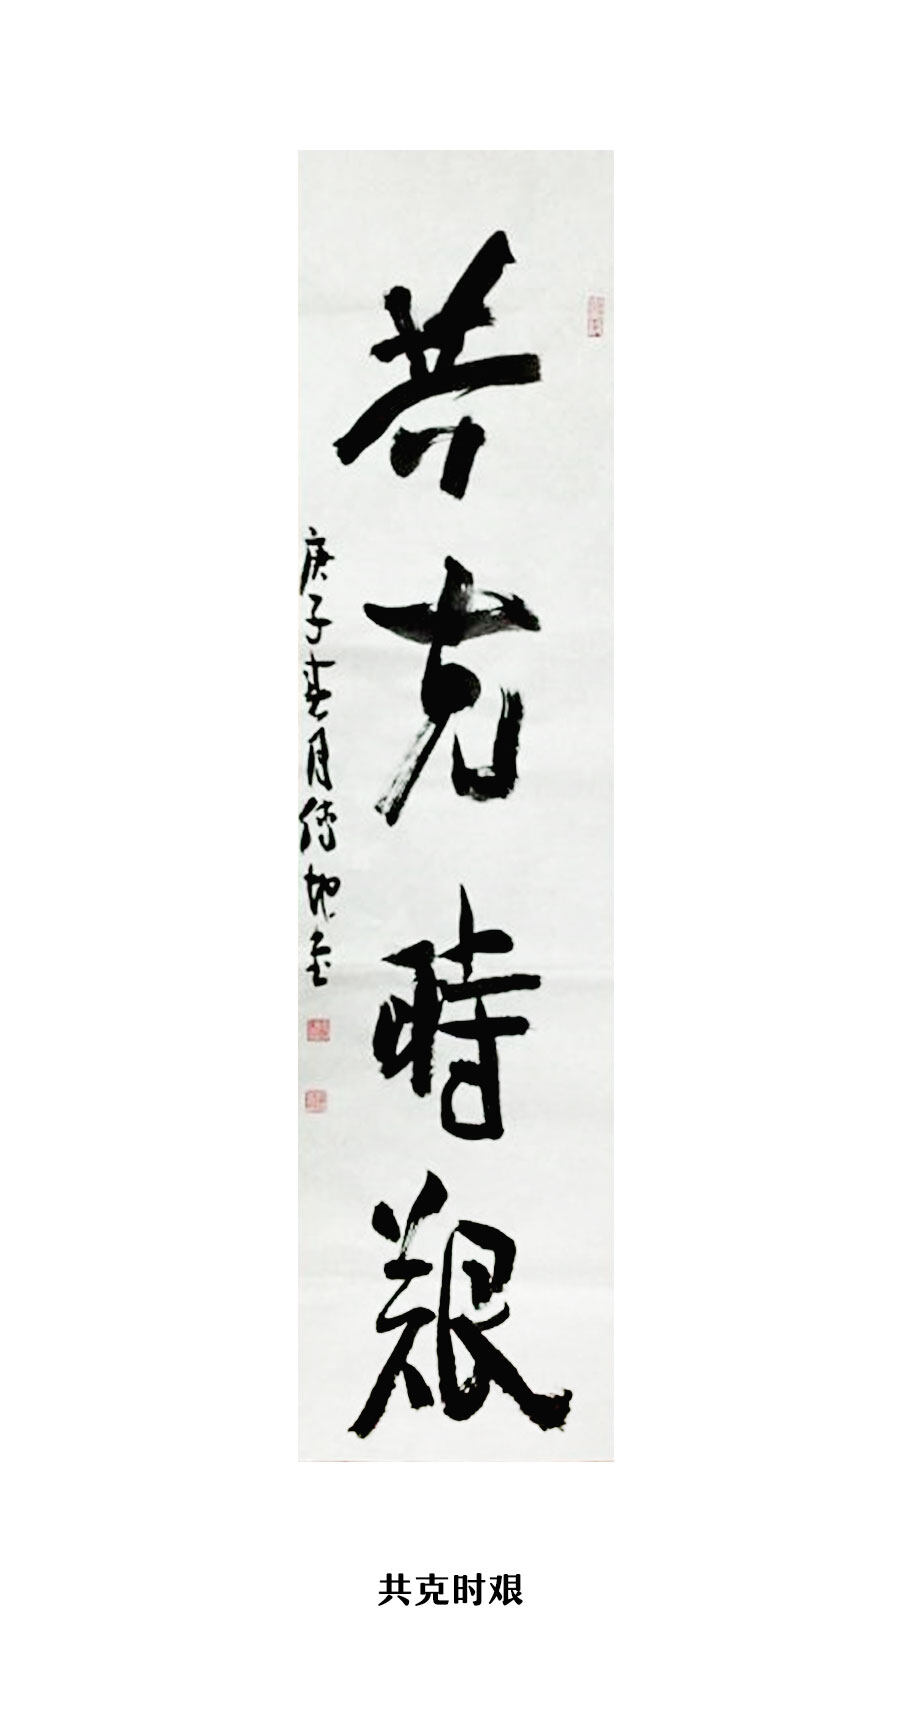 共克時艱
庚子春月
共克时艰